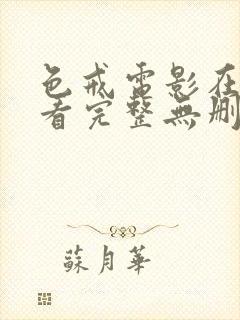 色戒電影在
看完整無刪
蘇月華